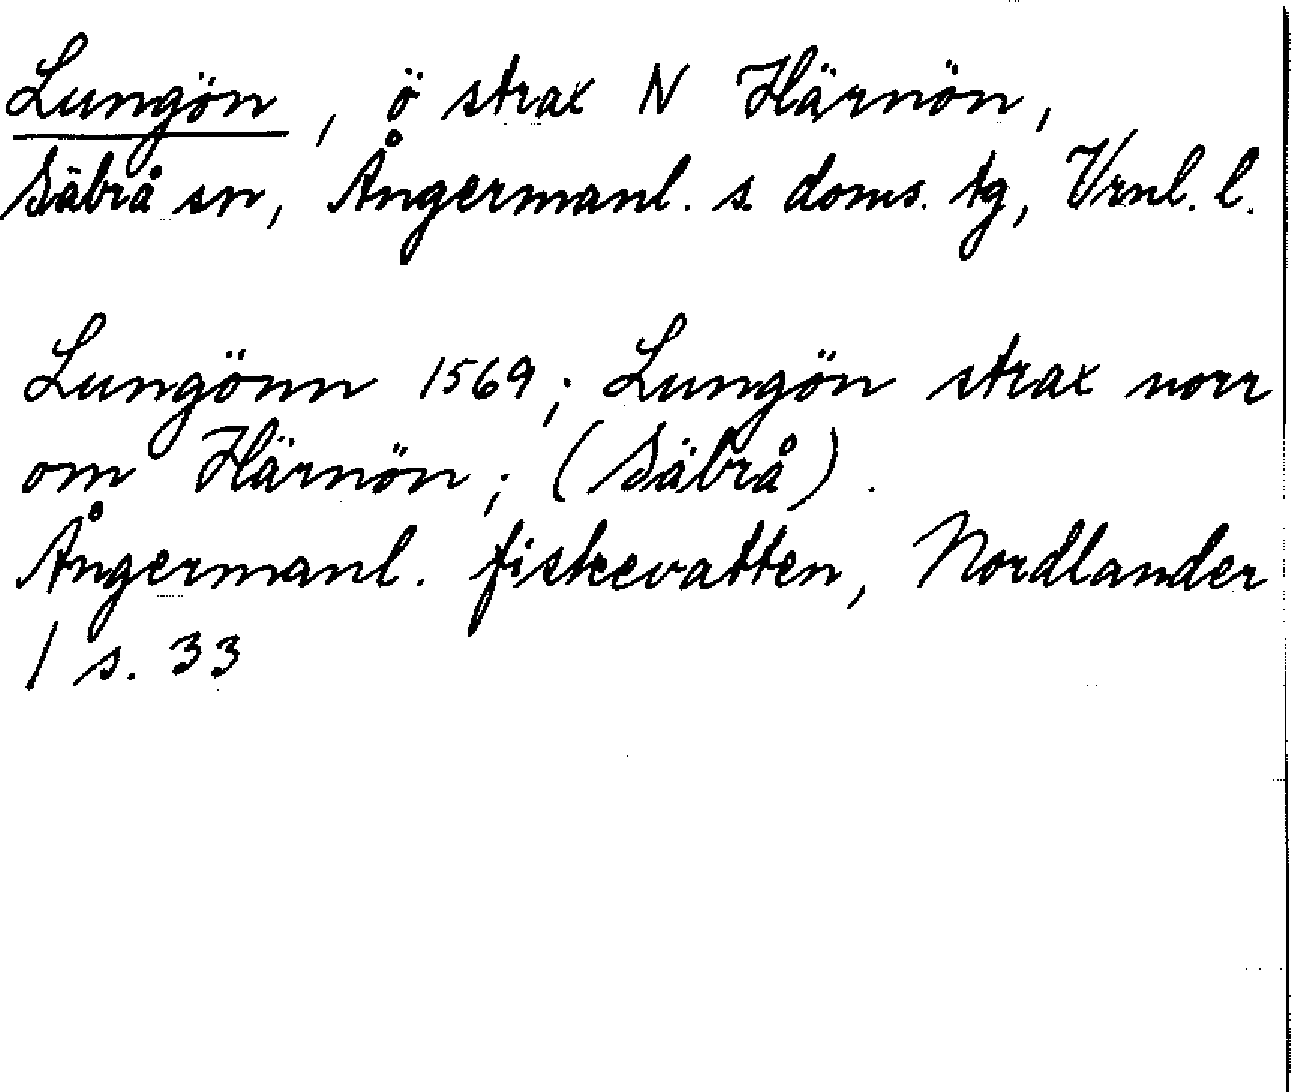 Lungön, ö strax N Härnön,
Säbrå sn, Ångermanl. s. doms. tg, Vrnl. l.
Lungönn 1569; Lungön strax norr
om Härnön; (Säbrå).
Ångermanl. fiskevatten, Nordlander
1 s. 33